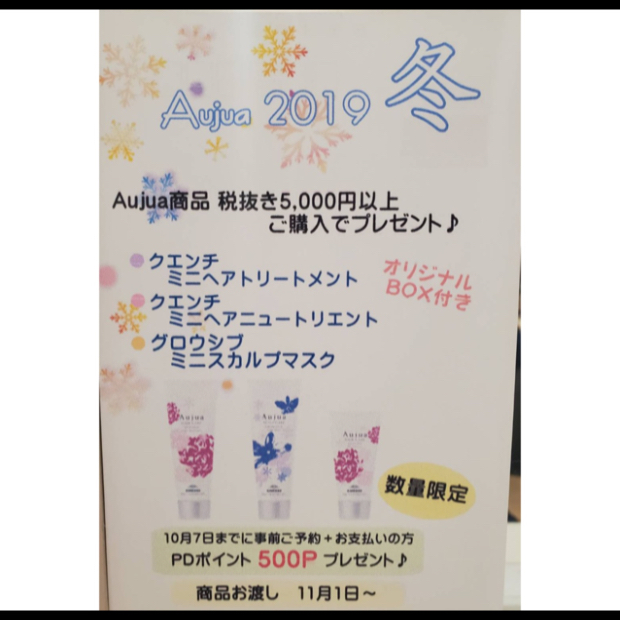 Aujua 2019 冬
Aujua商品 税抜き5,000円以上
ご購入でプレゼント♪
クエンチ
ミニヘアトリートメント
クエンチ
ミニヘアニュートリエント
グロウシブ
ミニスカルプマスク
オリジナル
BOX付き
Aujua
Aujua
Aujua
数量限定
10月7日までに事前ご予約+お支払いの方
PDポイント 500P プレゼント♪
商品お渡し 11月1日～